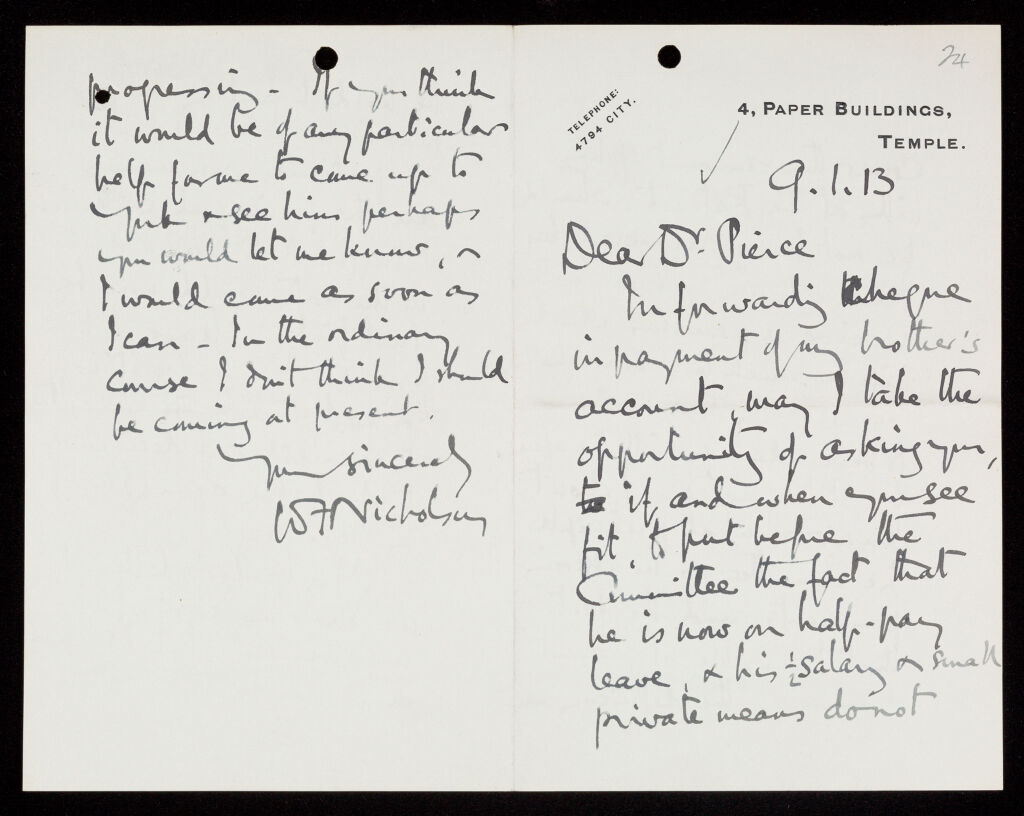 24
TELEPHONE:
4794 CITY.
4, PAPER BUILDINGS,
TEMPLE.
9.1.13
Dear Dr. Pierce
In forwarding cheque
in payment of my brother's
account, may I take the
opportunity of asking you,
to if, and when you see
fit, to put before the
Committee the fact that
he is now on half-pay
leave, & his ½ salary & small
private means do not
progressing - If you think
it would be of any particular
help for me to come up to
York & see him perhaps
you would let me know, &
I would come as soon as
I can - In the ordinary
course I don't think I should
be coming at present.
Yours sincerely
W F Nicholson